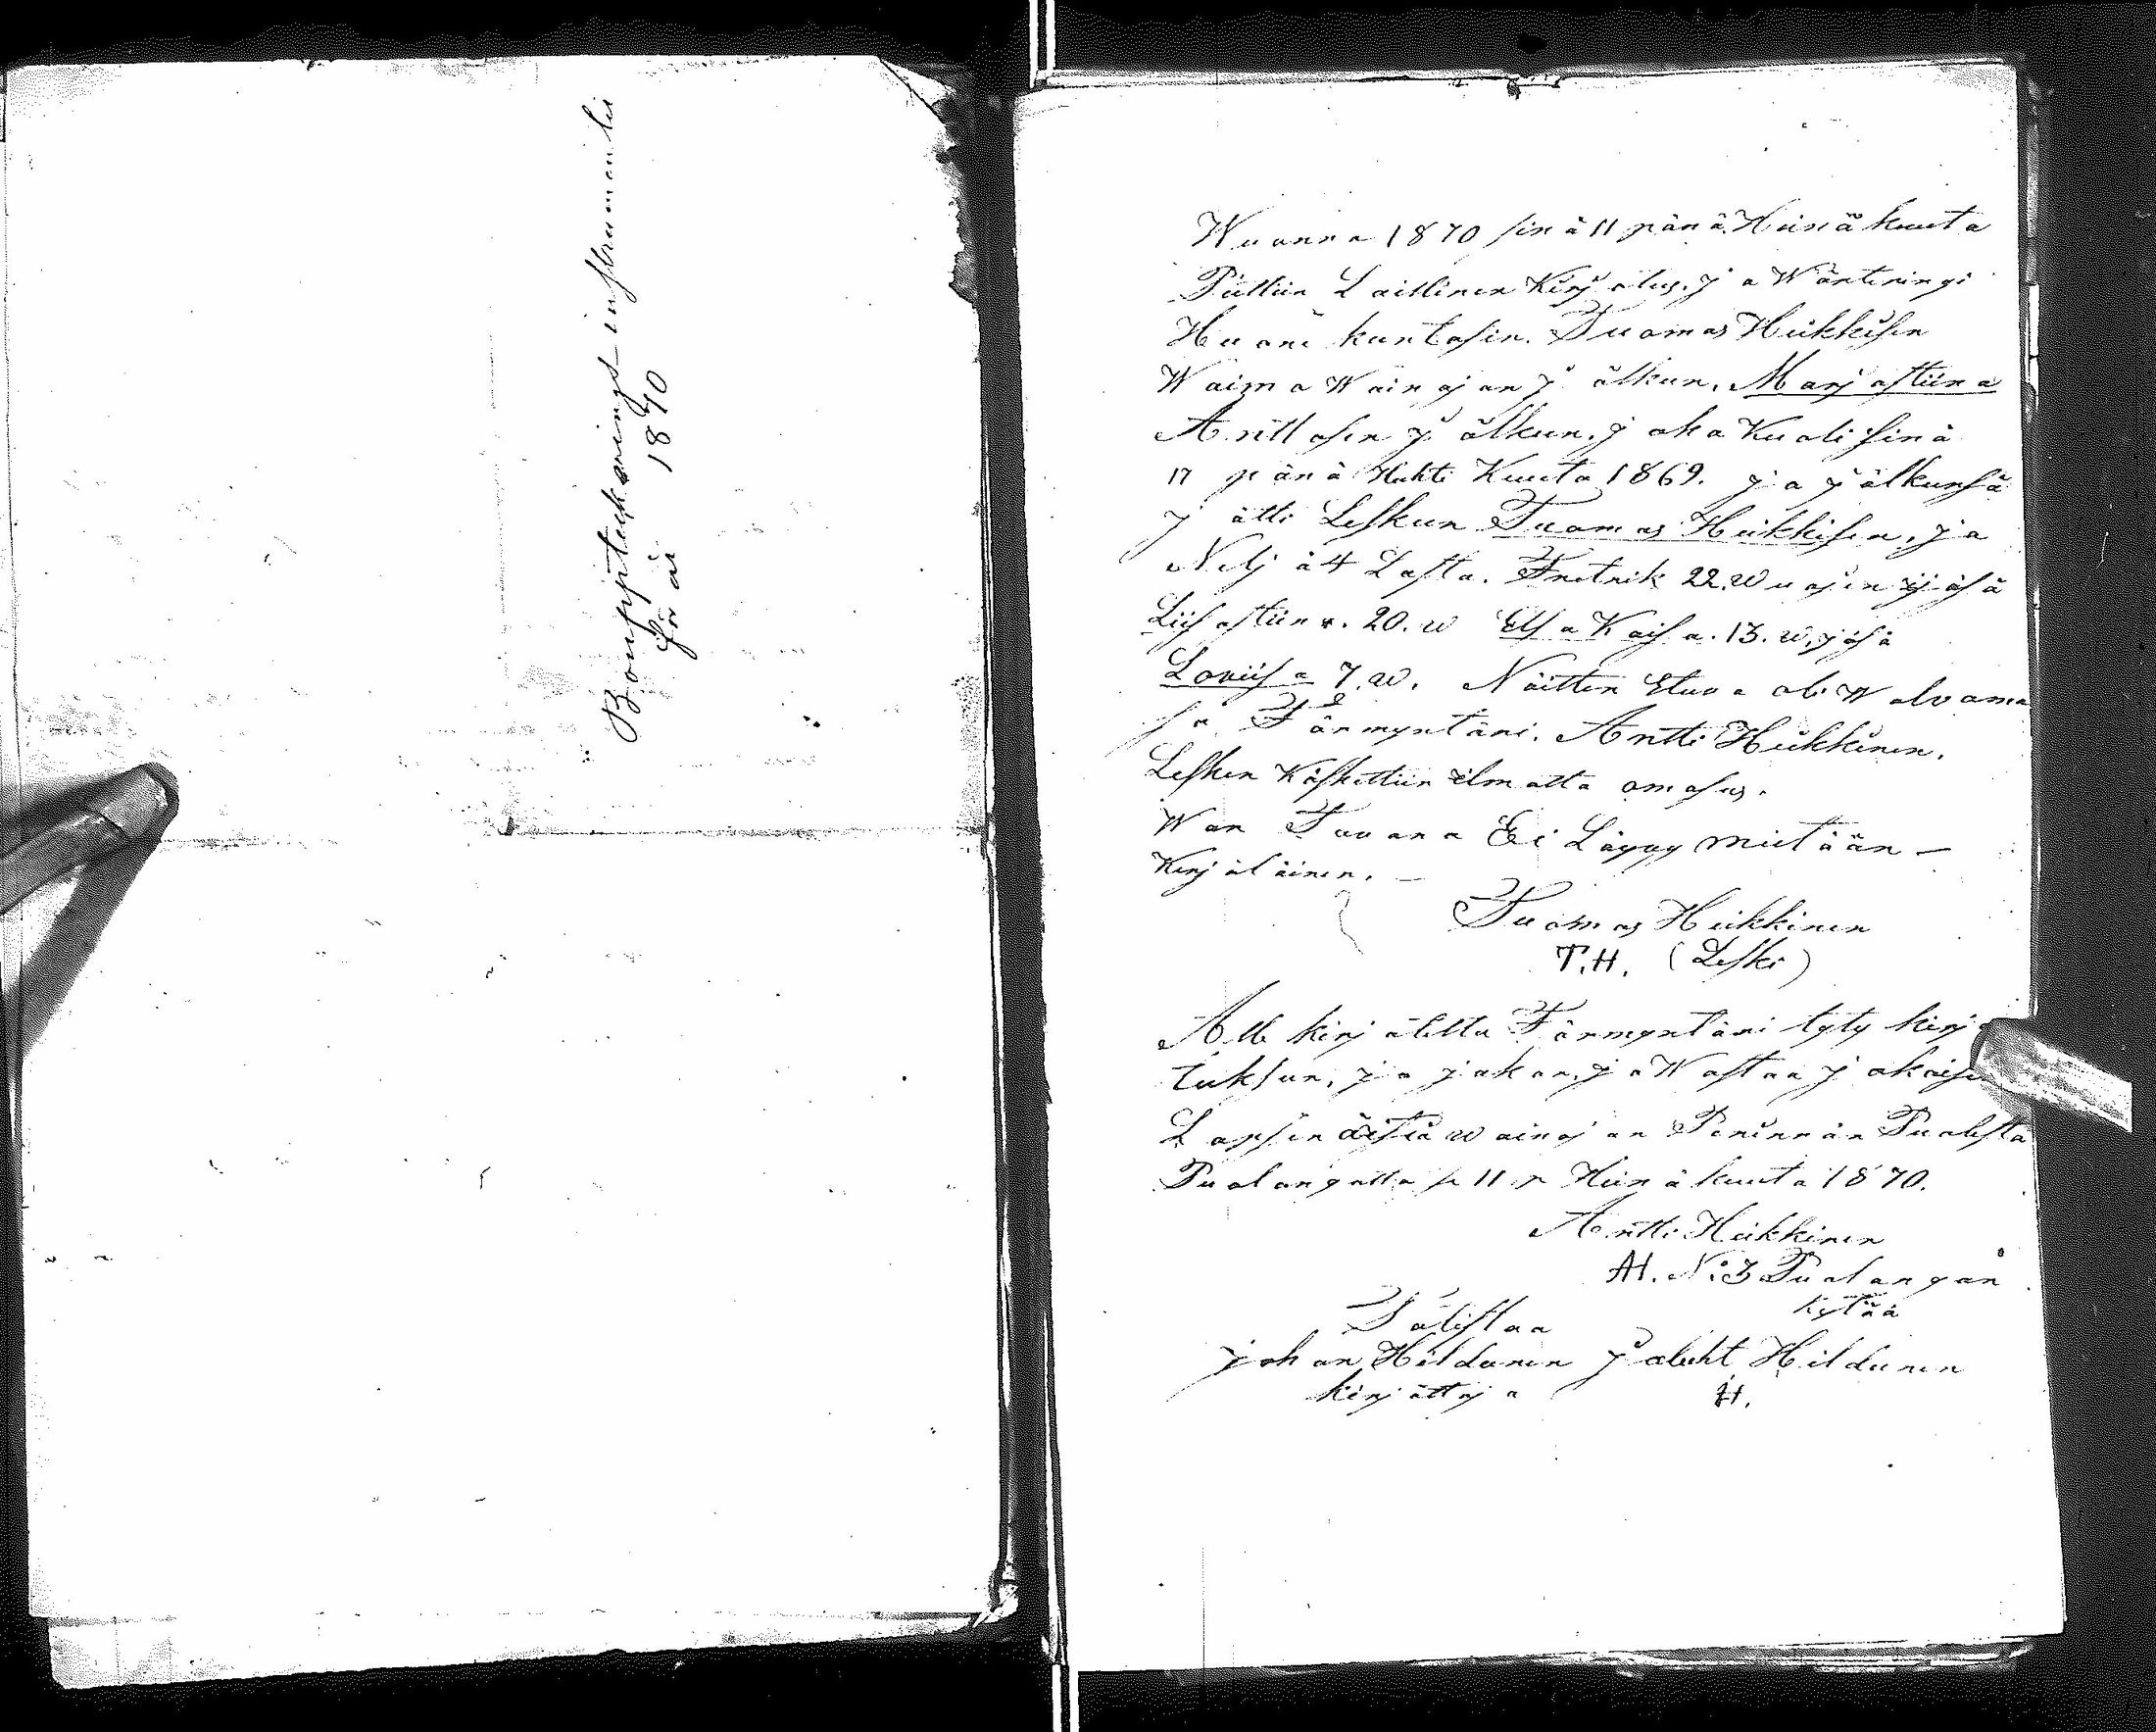 Boupptecknings instrumenter
för år 1870
Wuonna 1870 sinä 11 pänä Heinäkuuta
Piettiin Laillinen Kirjotus, ja Wärteringi
Huonekuntasen. Tuomas Heikkisen
Waimo Wainajan jälkun, Marjastiina
Anttlosen jälkun, joka Kuoli sinä
17 pänä Huhti Kuuta 1869. ja jälkunsä
jätti Leskun Tuomas Heikkisen, ja
Neljä 4 Lasta. Fretrik 22. Wuosen ijäsä
Liisastiina. 20. w Elsa Kaisa. 13. w. jäsä
Loviisa 7. w. Näitten Etuva oli Walvoma
sa Färmyntäri. Antti Heikkinen.
Lesken Käskettiin ilmotta omasus.
Wan Tavara Ei Löyvy mietään —
Kirjäläinen. —
Tuomas Heikkinen
T.H. (Leski)
Alle kirjätettu Färmyntäri tyty kirjo
tuksen, ja jakon, ja Wastaa jokaisen
Lapsen äitiä wainajan Perinnän Puolesta
Puolangalla se 11 p Heinäkuuta 1870.
Antti Heikkinen
AH. N:3 Puolangan
kylää
Tälistaa
Johan Heldunen Jalieht Hildunen
kirjättäjä H.